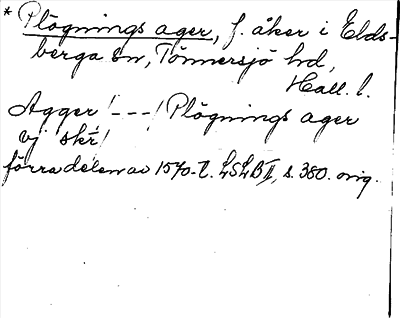 * Plögnings ager, f. åker i Elds-
berga sn, Tönnersjö hd,
Hall. l.
Agger /---/ Plögnings ager
vj skr/
förra delen av 1570-t. LSLB II, s. 380. orig.